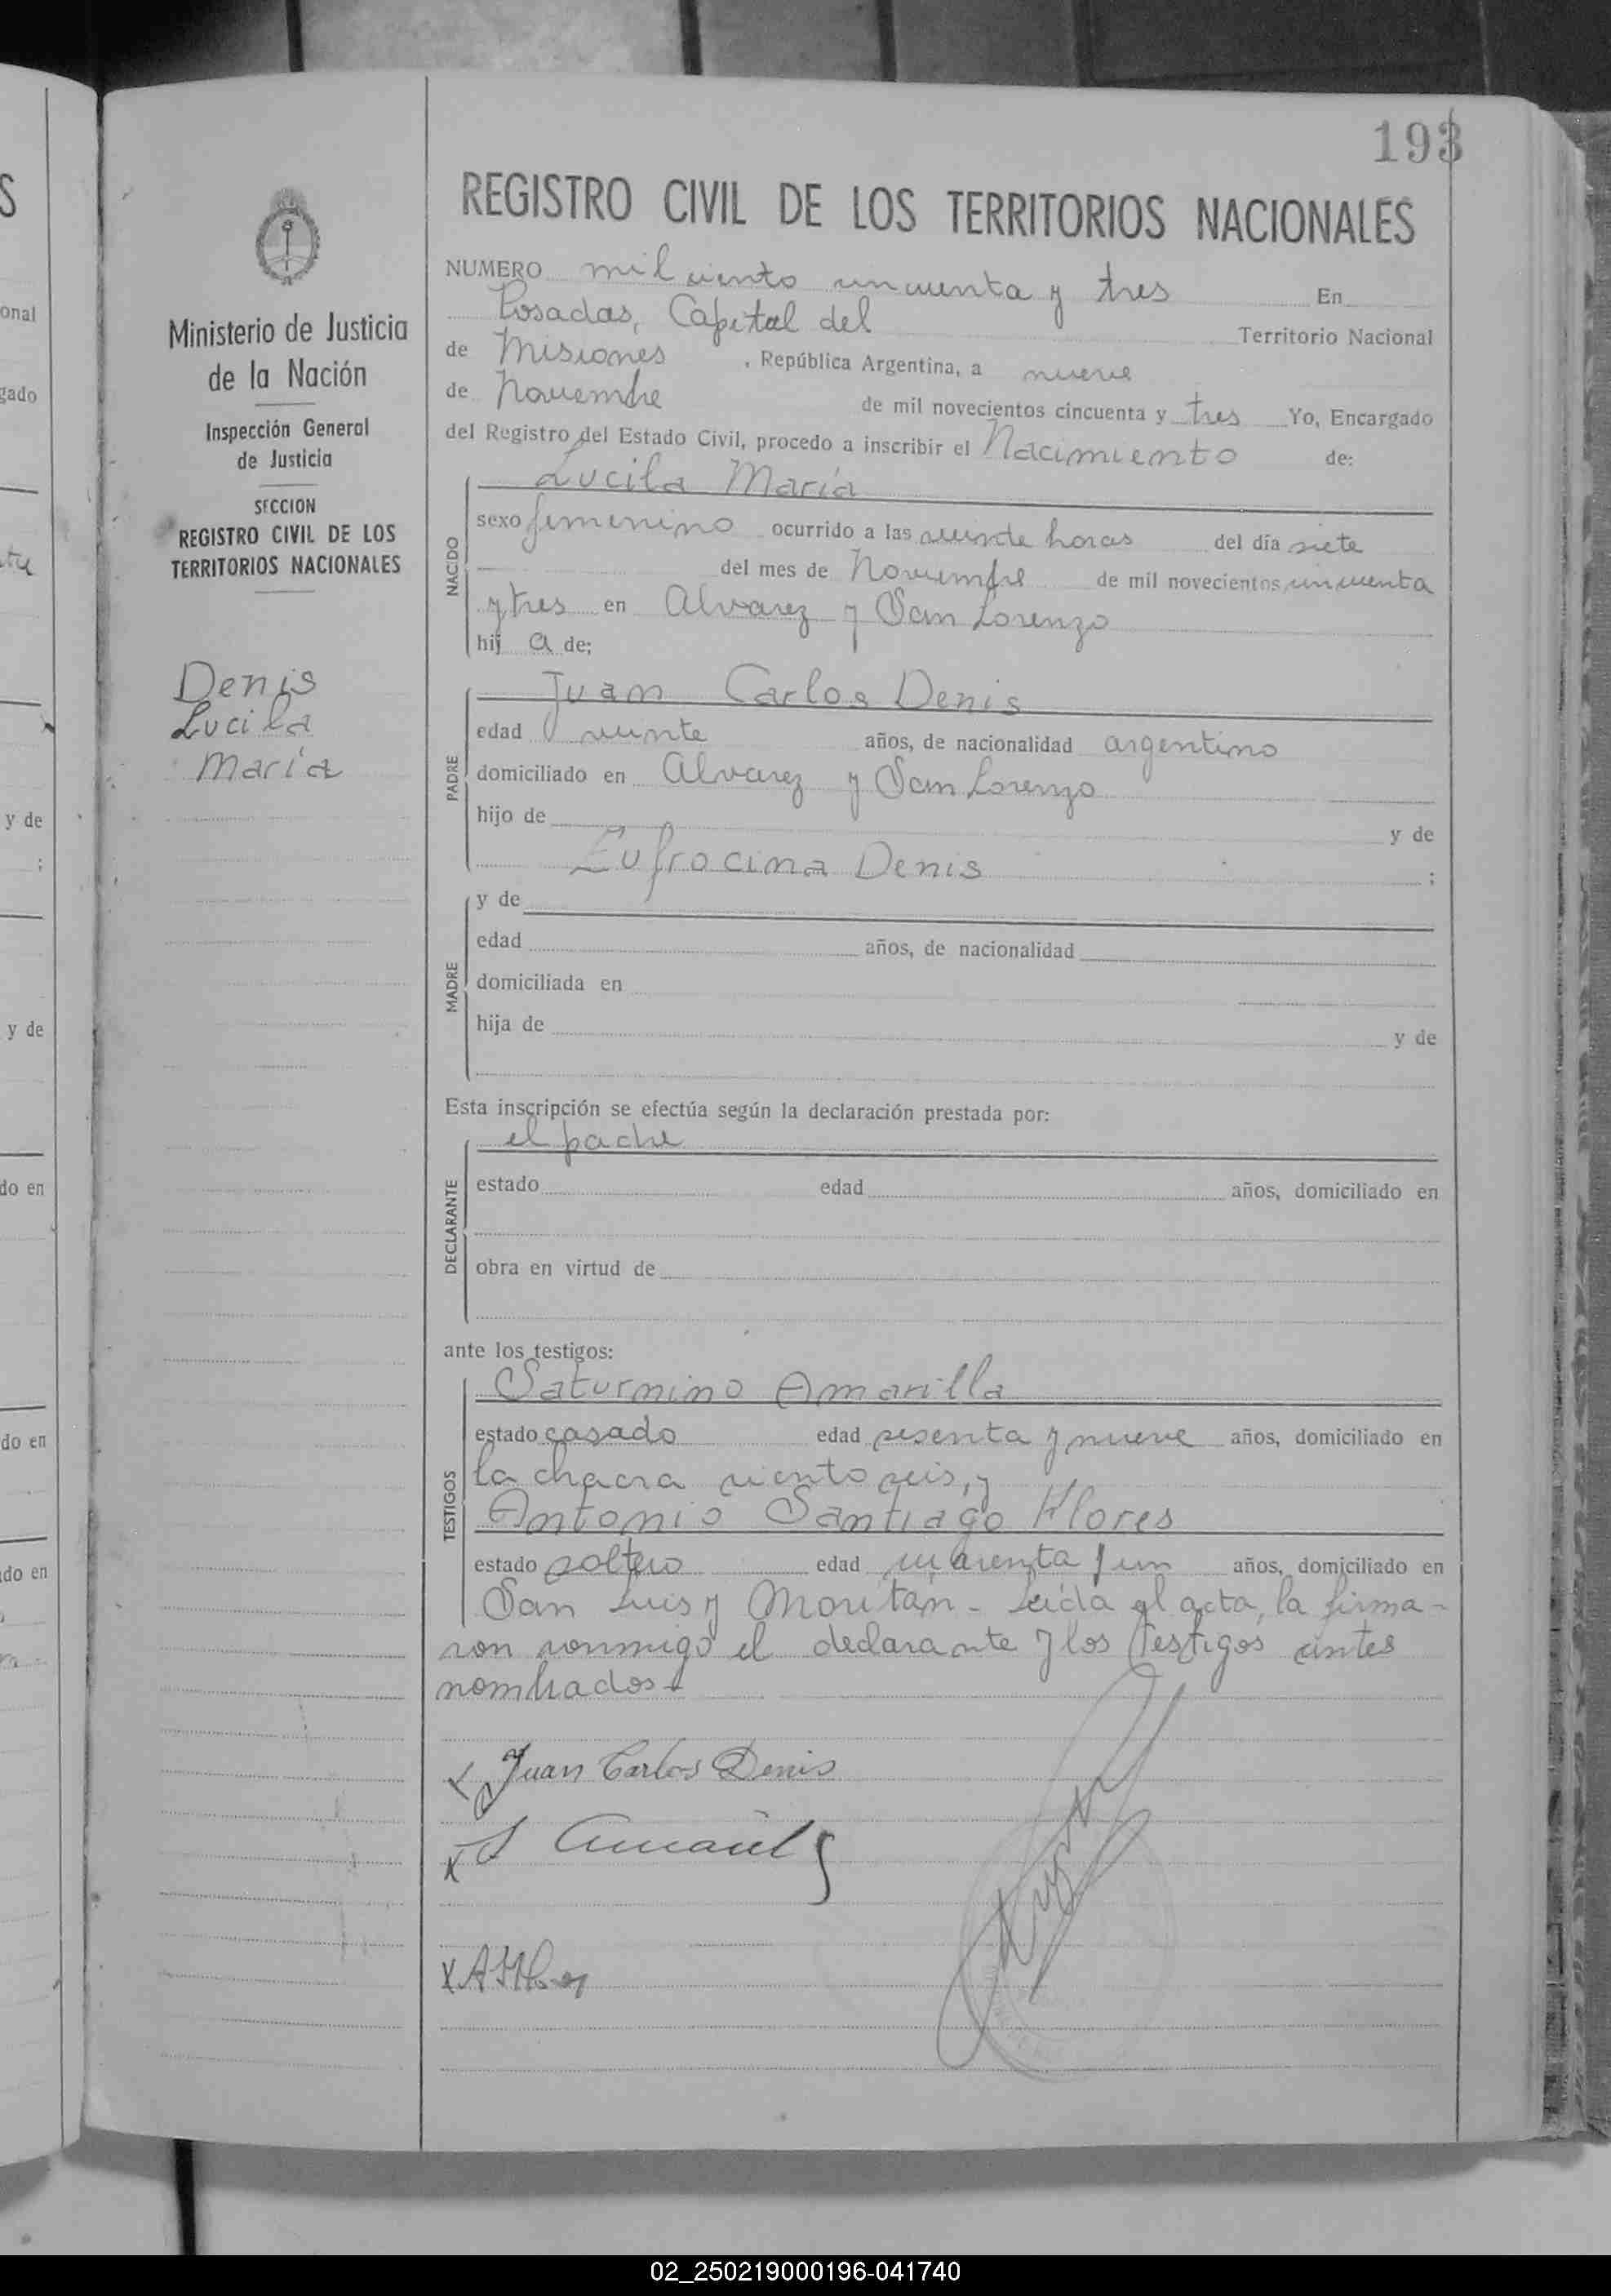 193
REGISTRO CIVIL DE LOS TERRITORIOS NACIONALES
Ministerio de Justicia
de la Nación
Inspección General
de Justicia
SECCION
REGISTRO CIVIL DE LOS
TERRITORIOS NACIONALES
Denis
Lucila
María
NUMERO mil ciento cincuenta y tres En
Posadas, Capital del Territorio Nacional
de Misiones, República Argentina, a nueve
de Noviembre de mil novecientos cincuenta y tres Yo, Encargado
del Registro del Estado Civil, procedo a inscribir el Nacimiento de:
NACIDO
Lucila María
sexo femenino ocurrido a las veinte horas del día siete
del mes de Noviembre de mil novecientos cincuenta
y tres en Alvarez y San Lorenzo
hij a de;
PADRE
Juan Carlos Denis
edad veinte años, de nacionalidad argentino
domiciliado en Alvarez y San Lorenzo
hijo de y de
Eufrocina Denis ;
MADRE
y de
edad años, de nacionalidad
domiciliada en
hija de y de
Esta inscripción se efectúa según la declaración prestada por:
DECLARANTE
el padre
estado edad años, domiciliado en
obra en virtud de
ante los testigos:
TESTIGOS
Saturnino Amarilla
estado casado edad sesenta y nueve años, domiciliado en
la chacra ciento seis, y
Antonio Santiago Flores
estado soltero edad cuarenta y un años, domiciliado en
San Luis y Moritán - Leída el acta, la firma-
ron conmigo el declarante y los testigos antes
nombrados.
Juan Carlos Denis
02_250219000196-041740